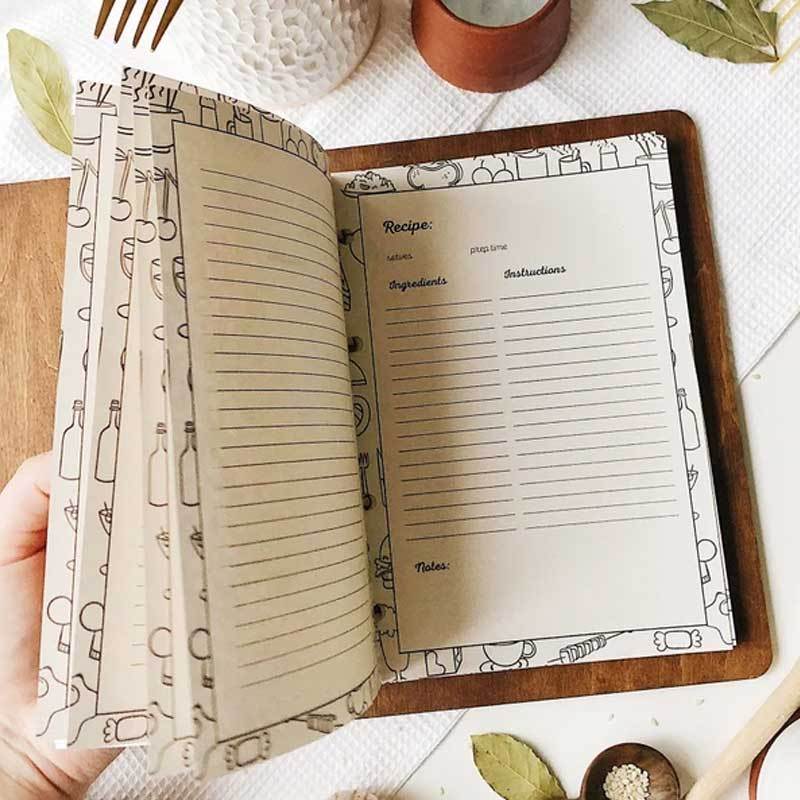 Recipe:
serves prep time
Ingredients Instructions
Notes: